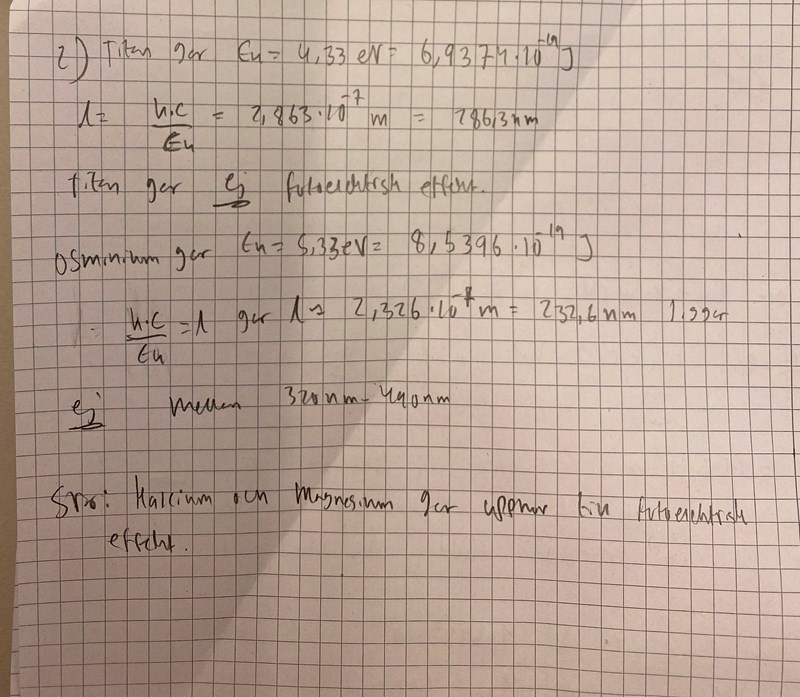 2) Titan ger Eu = 4,33 eV = 6,9374·10⁻¹⁹ J
λ = h·c / Eu = 2,863·10⁻⁷ m = 286,3 nm
Titan ger ej fotoelektrisk effekt.
Osminium ger Eu = 5,33 eV = 8,5396·10⁻¹⁹ J
h·c / Eu = λ ger λ → 2,326·10⁻⁷ m = 232,6 nm ligger
ej mellan 320 nm - 440 nm
Svar: Kalcium och Magnesium ger upphov till fotoelektrisk
effekt.